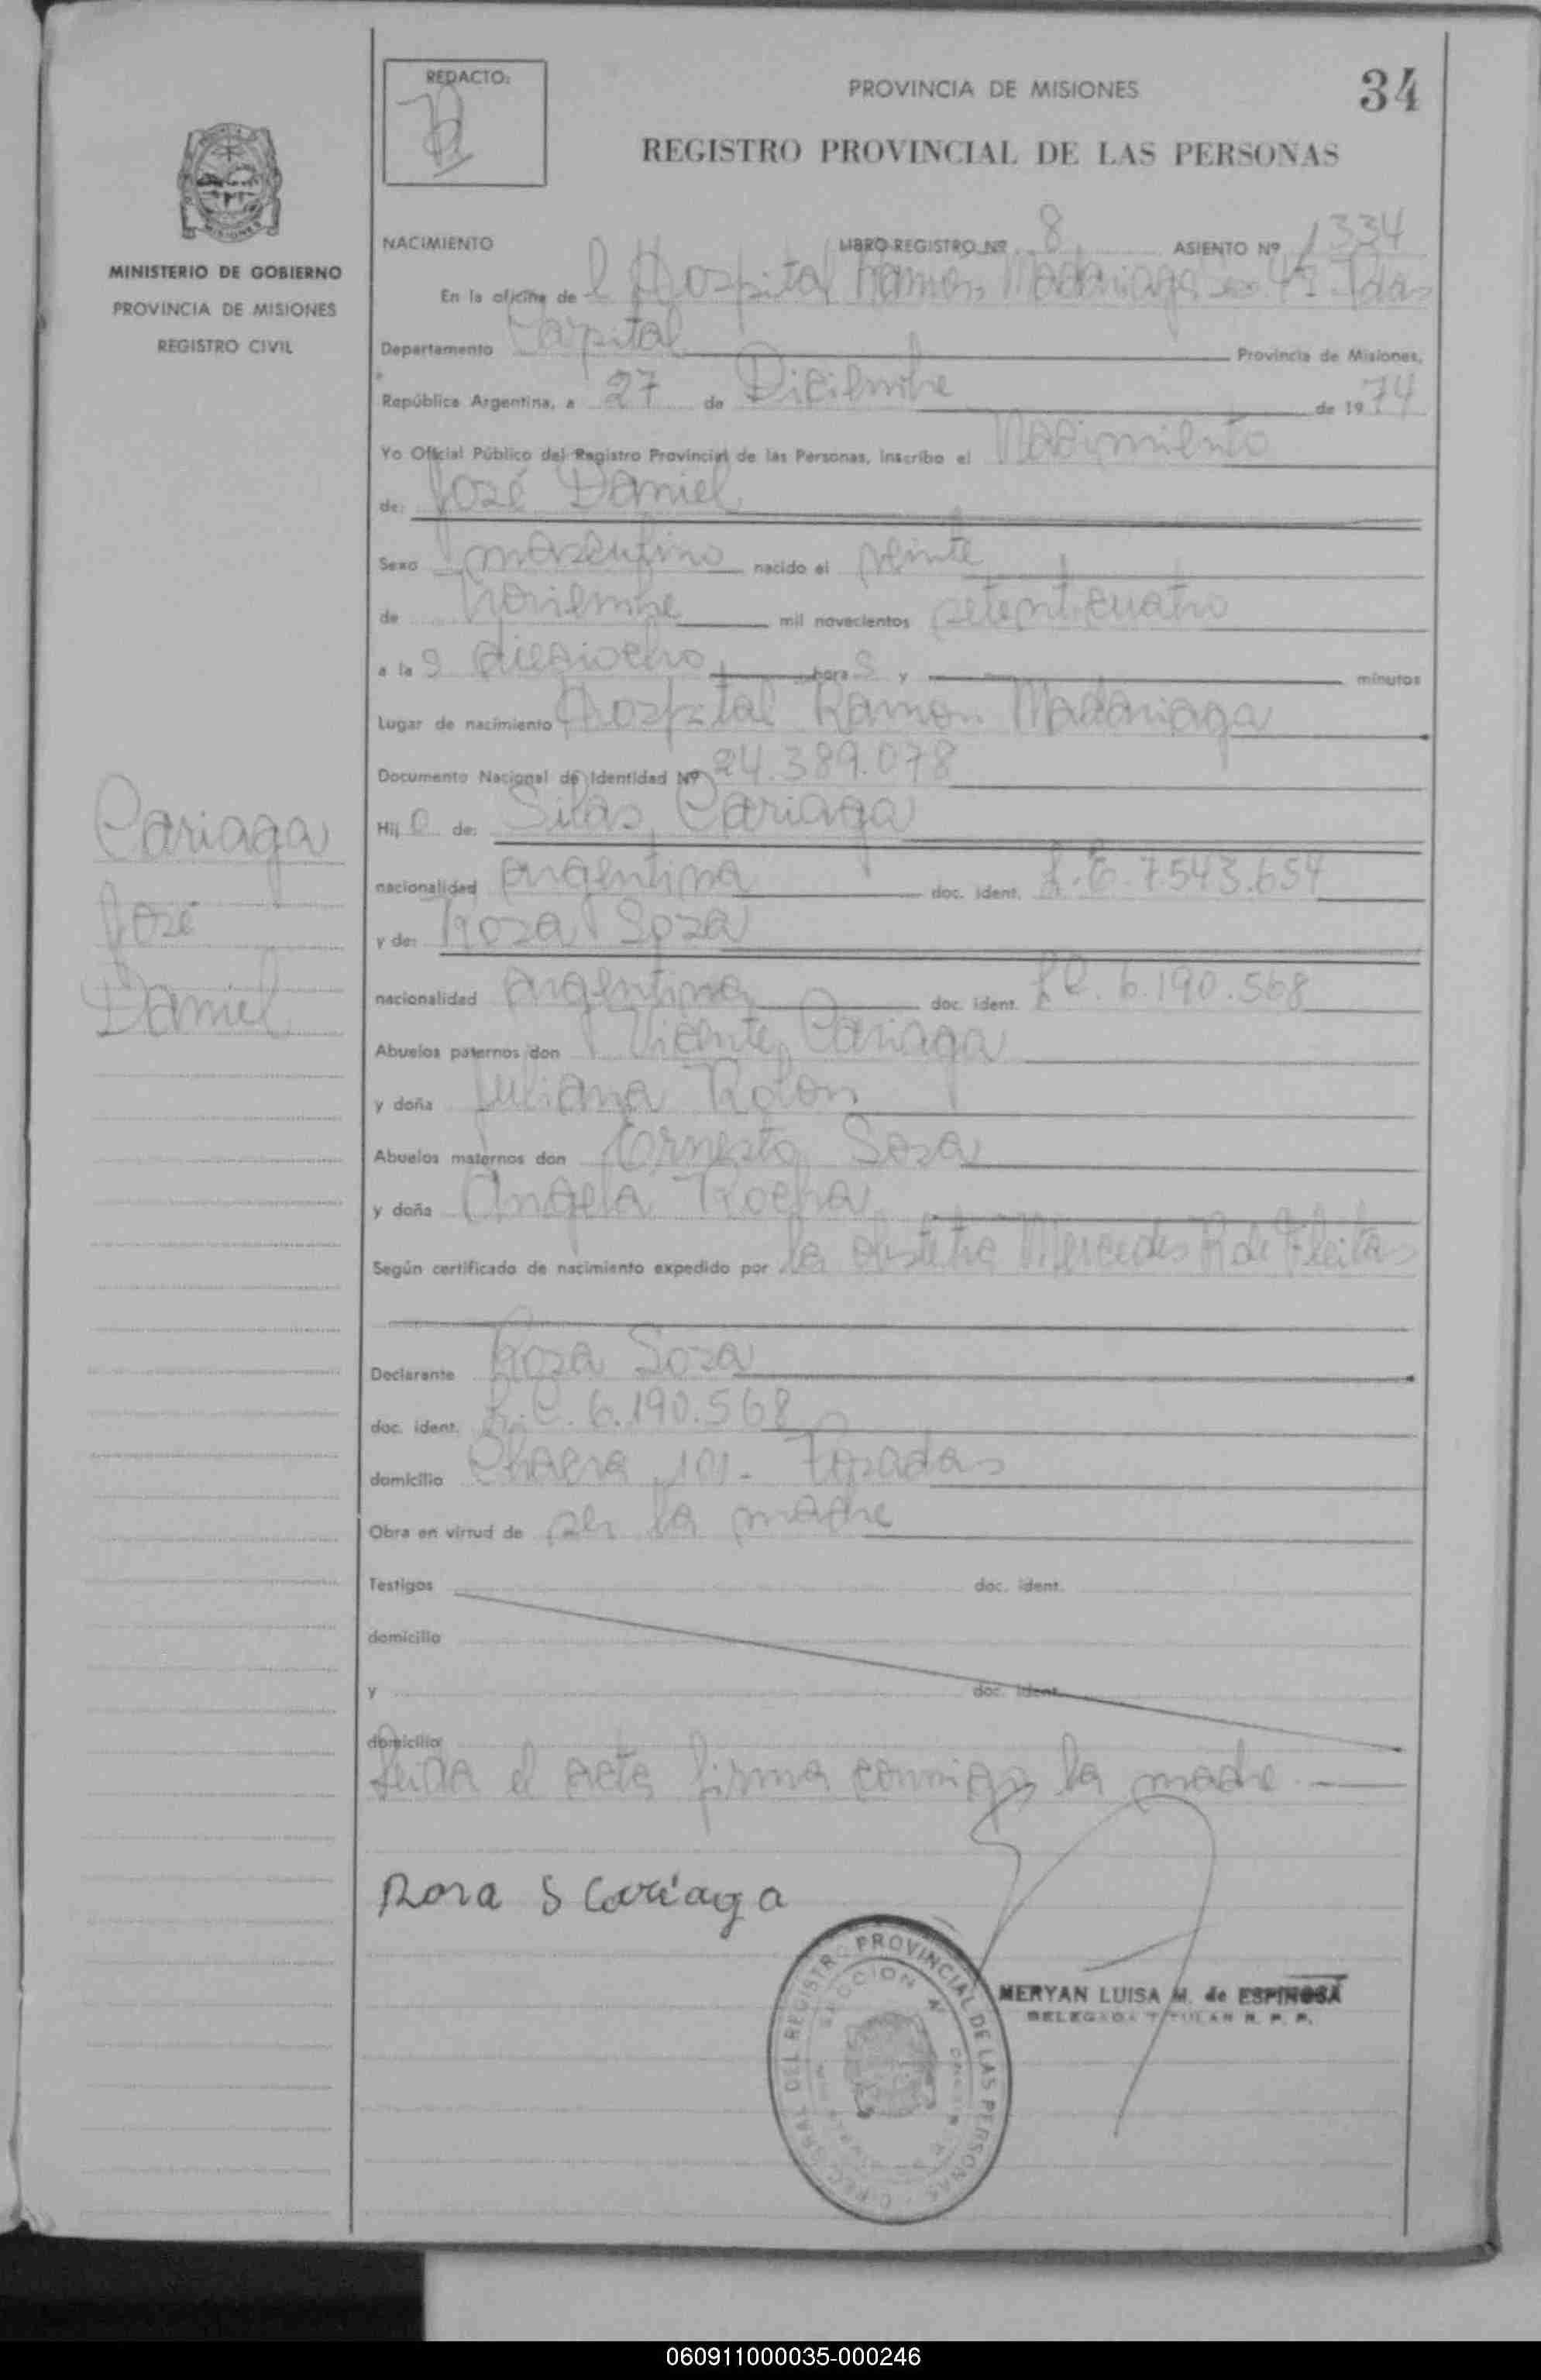 REDACTO:
PROVINCIA DE MISIONES
34
REGISTRO PROVINCIAL DE LAS PERSONAS
MINISTERIO DE GOBIERNO
PROVINCIA DE MISIONES
REGISTRO CIVIL
NACIMIENTO LIBRO REGISTRO Nº 8 ASIENTO Nº 1334
En la oficina de l Hospital Ramon Madariaga Sec 4ª Pdas
Departamento Capital Provincia de Misiones,
República Argentina, a 27 de Diciembre de 1974
Yo Oficial Público del Registro Provincial de las Personas, inscribo el Nacimiento
de: José Daniel
Sexo masculino nacido el veinte
de Noviembre mil novecientos setenticuatro
a las dieciocho horas y minutos
Lugar de nacimiento Hospital Ramon Madariaga
Documento Nacional de Identidad Nº 24.389.078
Hijo de: Silas Cariaga
nacionalidad argentina doc. ident. L.E. 7.543.654
y de: Rosa Soza
nacionalidad argentina doc. ident. L.C. 6.190.568
Abuelos paternos don Vicente Cariaga
y doña Juliana Rolon
Abuelos maternos don Ernesto Soza
y doña Angela Rocha
Según certificado de nacimiento expedido por la obstetra Mercedes R de Fleitas
Declarante Rosa Soza
doc. ident. L.C. 6.190.568
domicilio Chacra 101 - Posadas
Obra en virtud de ser la madre
Testigos doc. ident.
domicilio
y doc. ident.
domicilio
Leida el acta firma conmigo la madre
Cariaga
José
Daniel
Rosa S Cariaga
MERYAN LUISA M. de ESPINOSA
DELEGADA TITULAR R. P. P.
DEL REGISTRO PROVINCIAL DE LAS PERSONAS
SECCION
060911000035-000246